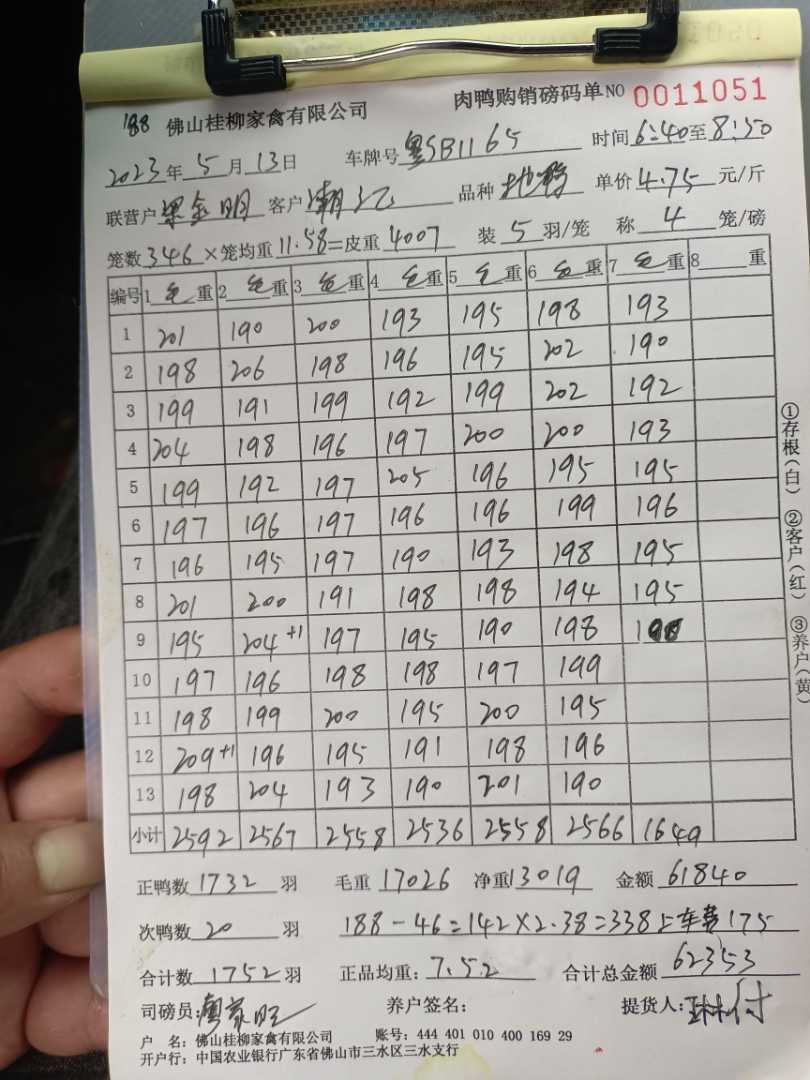 188 佛山桂柳家禽有限公司 肉鸭购销磅码单 NO 0011051
2023年5月13日 车牌号 粤SB1165 时间6:40至8:50
联营户 梁金明 客户 潮记 品种 单价4.75元/斤
笼数346×笼均重11.58=皮重4007 装5羽/笼 称4笼/磅
编号 1毛重 2毛重 3毛重 4毛重 5毛重 6毛重 7毛重 8重
1 201 190 200 193 195 198 193
2 198 206 198 196 195 202 190
3 199 191 199 192 199 202 192
4 204 198 196 197 200 200 193
5 199 192 197 205 196 195 195
6 197 196 197 196 196 199 196
7 196 195 197 190 193 198 195
8 201 200 191 198 198 194 195
9 195 204+1 197 195 190 198
10 197 196 198 198 197 199
11 198 199 200 195 200 195
12 209+1 196 195 191 198 196
13 198 204 193 190 201 190
小计 2592 2567 2558 2536 2558 2566 1649
正鸭数1732羽 毛重17026 净重13019 金额61840
次鸭数20羽 188-46=142×2.38=338 上车费175
合计数1752羽 正品均重:7.52 合计总金额62353
司磅员: 养户签名: 提货人:
户 名:佛山桂柳家禽有限公司 账号:444 401 010 400 169 29
开户行:中国农业银行广东省佛山市三水区三水支行
①存根(白) ②客户(红) ③养户(黄)